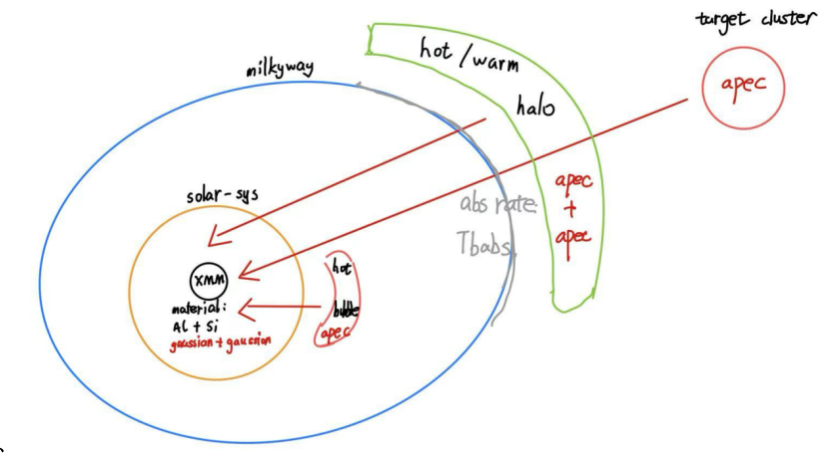 target cluster
apec
hot/warm
halo
milkyway
apec
+
apec
abs rate
Tbabs
solar-sys
XMM
material:
Al + Si
gaussian + gaussian
hot
bubble
apec